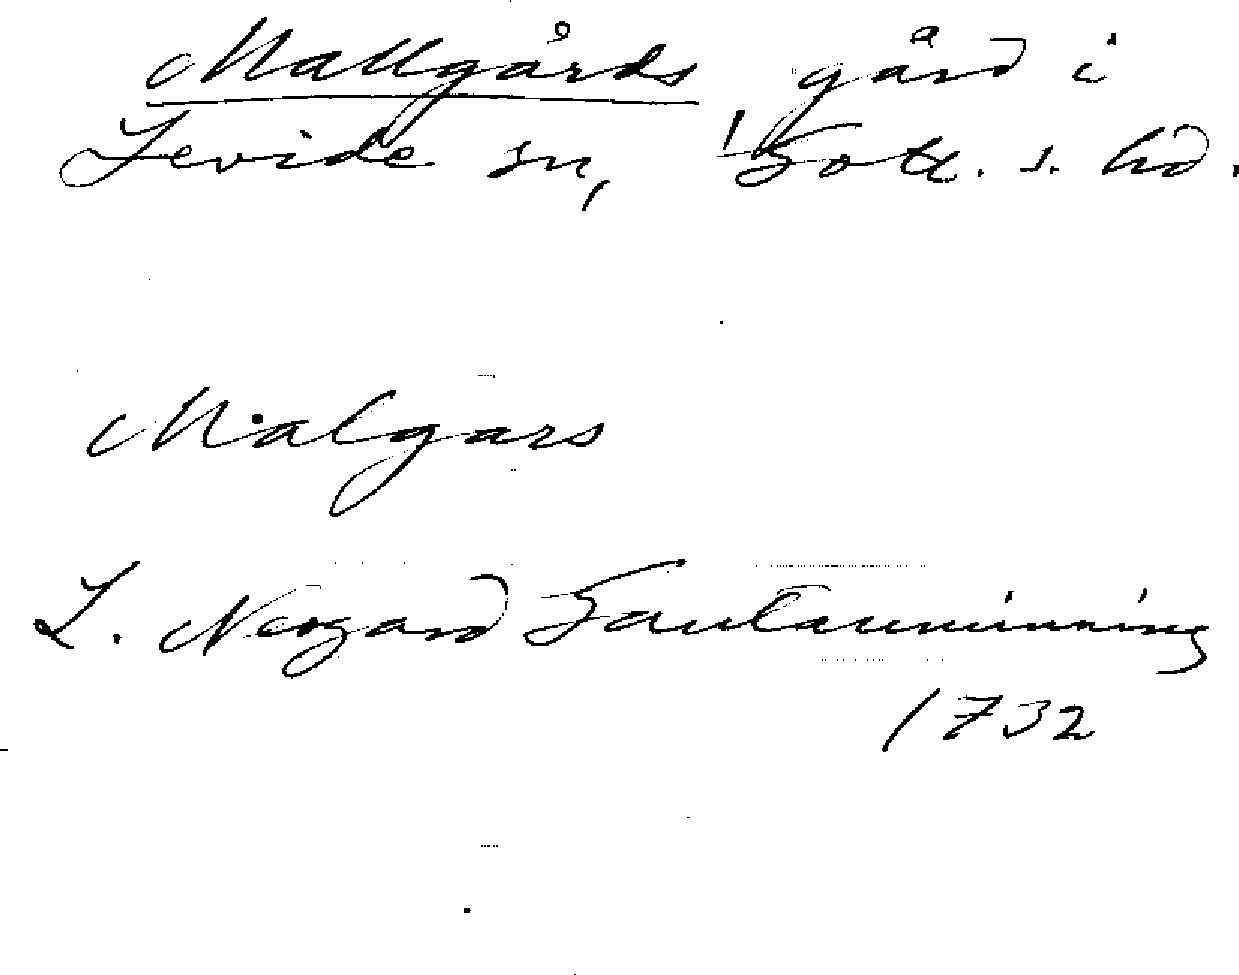 Mallgårds gård i
Levide sn, Gotl. s. hd.
Malgars
L. Neogard Gautauminning
1732